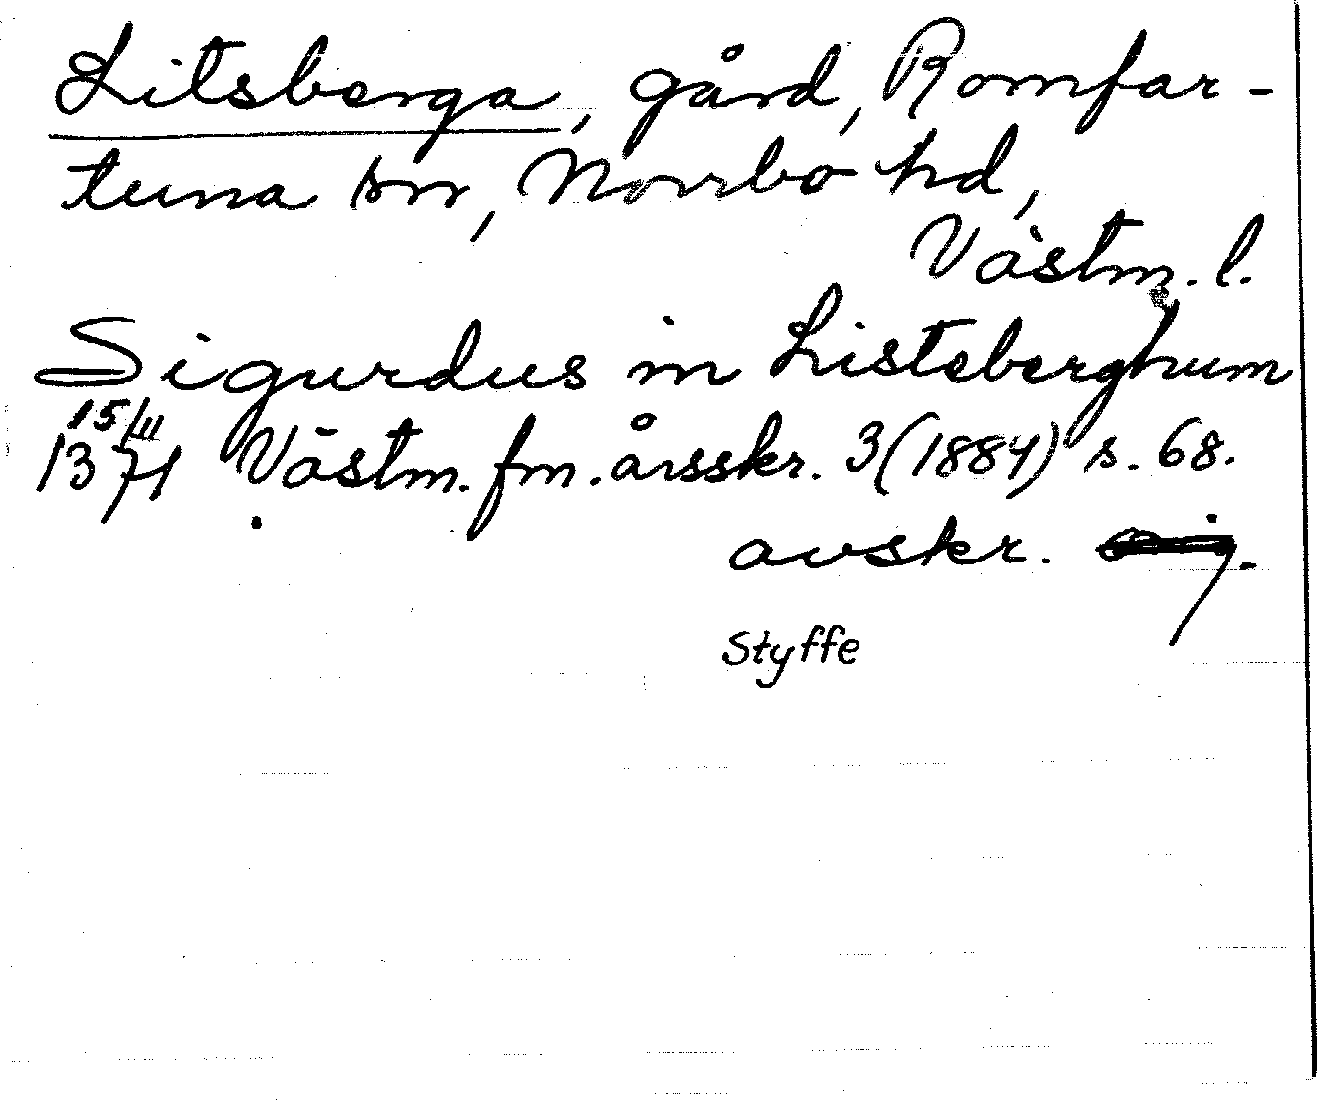 Litsberga, gård, Romfar-
tuna sn, Norrbo hd,
Västm. l.
Sigurdus in Listeberghum
15/III
1371 Västm. fm. årsskr. 3 (1884) s. 68.
avskr.
Styffe